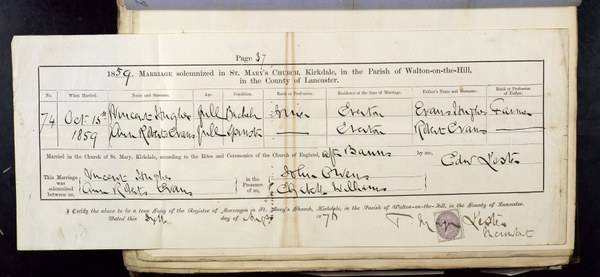 Page 37
1859. MARRIAGE solemnized in ST. MARY'S CHURCH, Kirkdale, in the Parish of Walton-on-the-Hill,
in the County of Lancaster.
No. When Married. Name and Surname. Age. Condition. Rank or Profession. Residence at the time of Marriage. Father's Name and Surname. Rank or Profession of Father.
74 Oct 15th Vincent Hughes full Everton Evans Hughes Farmer
1859 Ann Roberts Evans full Spinster — Everton Robert Evans —
Married in the Church of St. Mary, Kirkdale, according to the Rites and Ceremonies of the Church of England, after Banns by me, Edw Lester
This Marriage was solemnized between us, Vincent Hughes in the Presence of us, John Owens
Ann Roberts Evans Williams
I Certify the above to be a true Copy of the Register of Marriages in St. Mary's Church, Kirkdale, in the Parish of Walton-on-the-Hill, in the County of Lancaster.
Dated this day of 1876 Lester